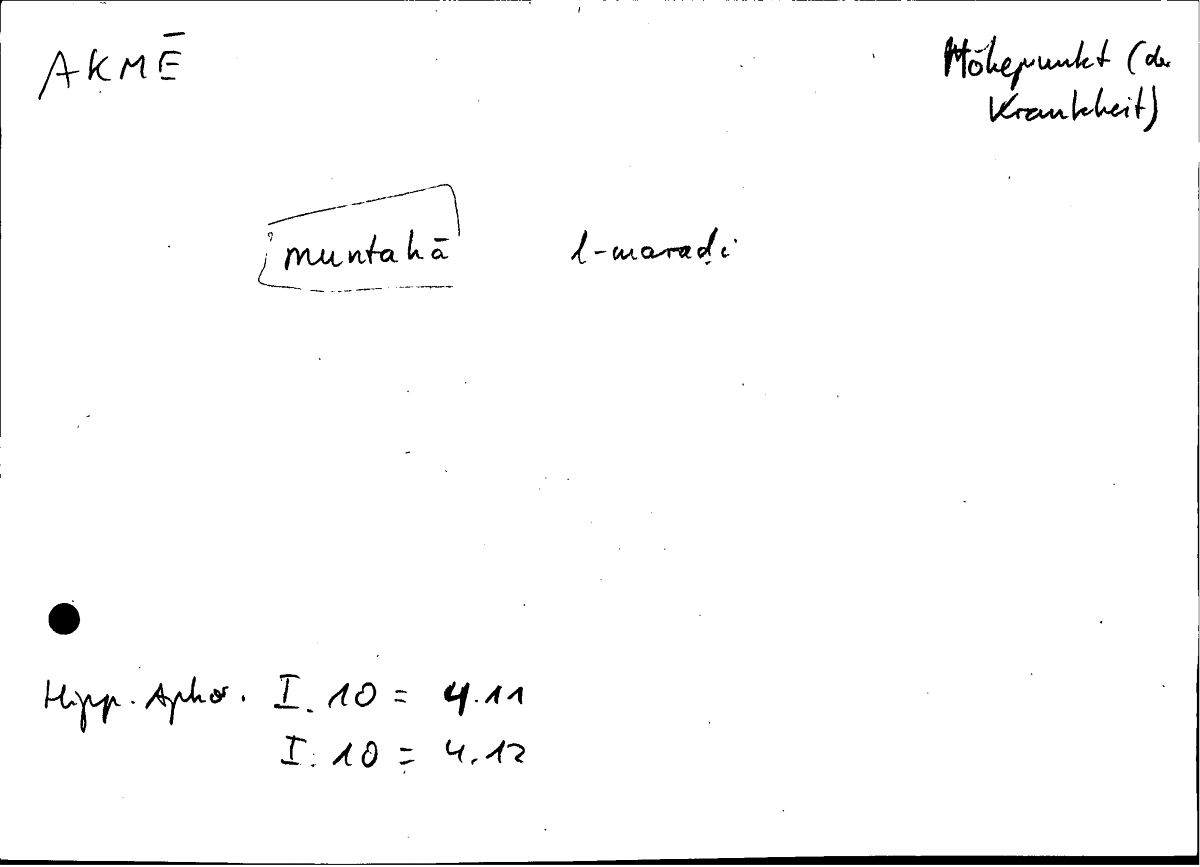 AKMĒ
Höhepunkt (der
Krankheit)
muntahā l-maraḍi
Hipp. Aphor. I. 10 = 4.11
I. 10 = 4.12